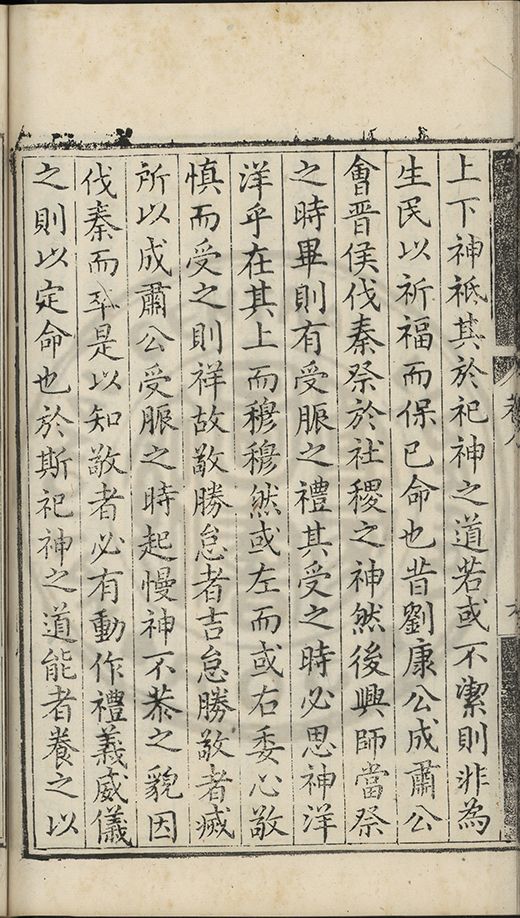 上下神祇其於祀神之道若或不潔則非為
生民以祈福而保已命也昔劉康公成肅公
會晋侯伐秦祭於社稷之神然後興師當祭
之時畢則有受脤之禮其受之時必思神洋
洋乎在其上而穆穆然或左而或右委心敬
慎而受之則祥故敬勝怠者吉怠勝敬者滅
所以成肅公受脤之時起慢神不恭之貌因
伐秦而卒是以知敬者必有動作禮義威儀
之則以定命也於斯祀神之道能者養之以